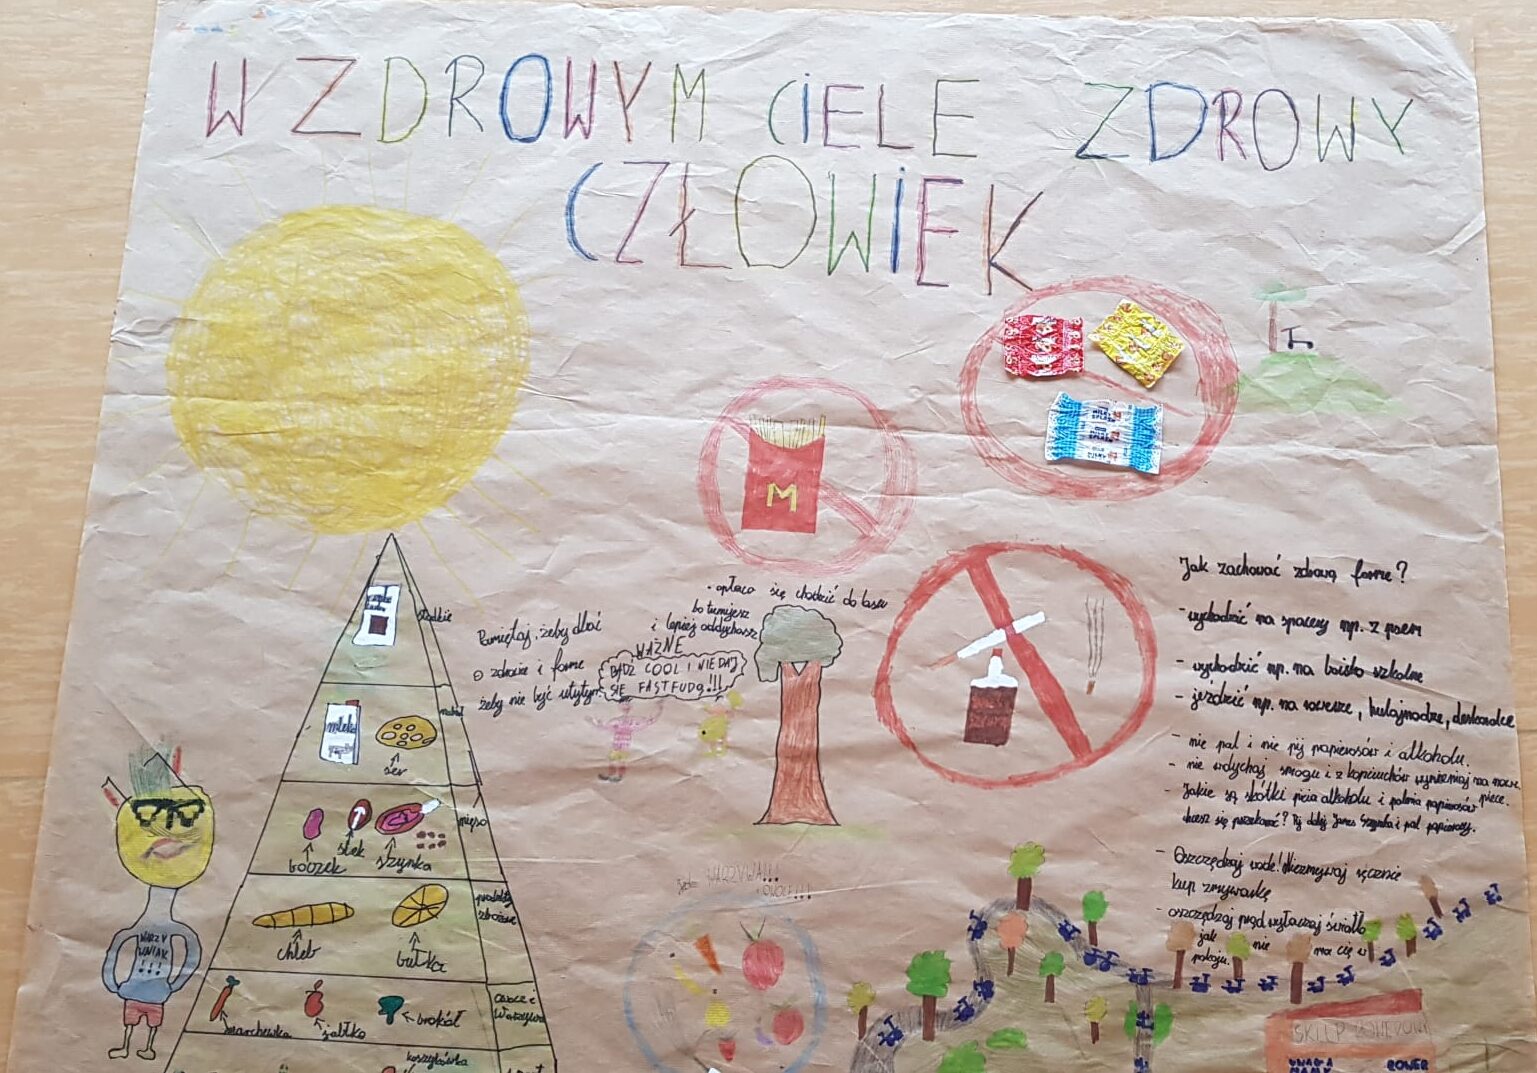 W ZDROWYM CIELE ZDROWY
CZŁOWIEK
M
słodkie
mleko
ser
boczek
stek
szynka
mięso
chleb
bułka
produkty
zbożowe
marchewka
jabłko
brokół
Owoce i
Warzywa
koszykówka
WARZY
WNIAK
!!!
Pamiętaj, żeby dbać
o zdrowie i formę
żeby nie być utytym
- opłaca się chodzić do lasu
bo tumijesz
i lepiej oddychasz
WAŻNE
BĄDŹ COOL I NIE DAJ
SIĘ FASTFUDĄ!!!
WARZYWA!!!
I OWOCE!!!
MILKY
SPLASH
Jak zachować zdrową formę?
- wychodzić na spacery np. z psem
- wychodzić np. na boisko szkolne
- jeździć np. na rowerze, hulajnodze, deskorolce
- nie pal i nie pij papierosów i alkoholu.
- nie wdychaj smogu i z kopciuchów wymieniaj na nowe
piece.
- Jakie są skótki picia alkoholu i palenia papierosów
chcesz się przekonać? Ty dalej
i pal papierosy.
- Oszczędzaj wodę! Niezmywaj ręcznie
kup zmywarkę
- oszczędzaj prąd wyłączaj światło
jak nie ma cię w
pokoju.
SKLEP ROWEROWY
UWAGA
MAMY
ROWER